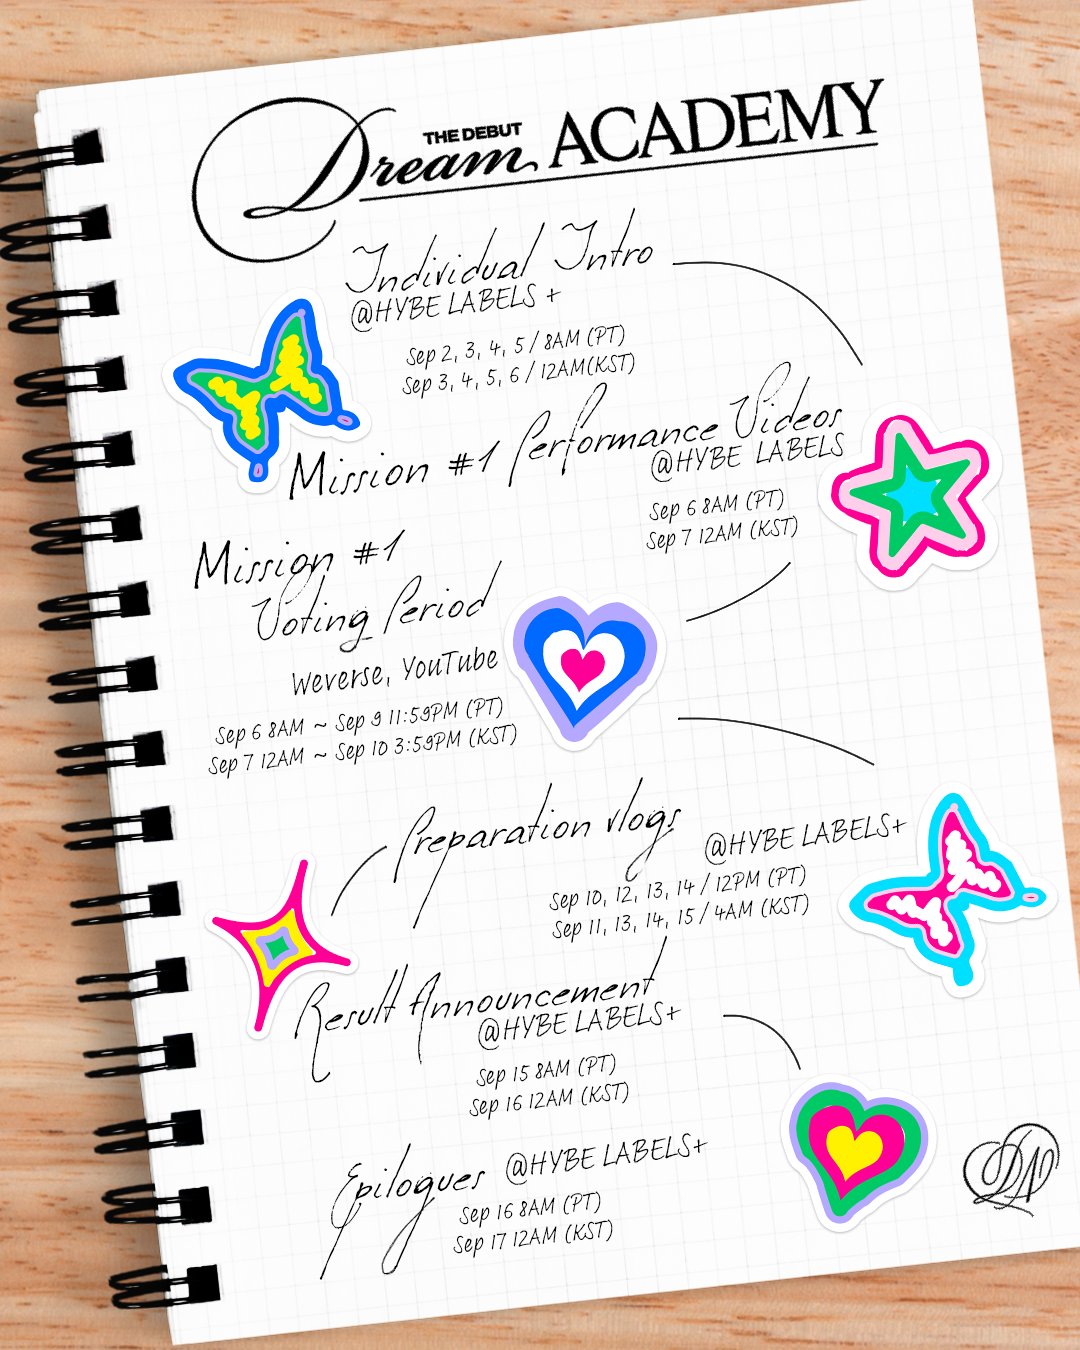 THE DEBUT
Dream ACADEMY
Individual Intro
@HYBE LABELS +
Sep 2, 3, 4, 5 / 8AM (PT)
Sep 3, 4, 5, 6 / 12AM(KST)
Mission #1 Performance Videos
@HYBE LABELS
Sep 6 8AM (PT)
Sep 7 12AM (KST)
Mission #1
Voting Period
Weverse, YouTube
Sep 6 8AM ~ Sep 9 11:59PM (PT)
Sep 7 12AM ~ Sep 10 3:59PM (KST)
Preparation vlogs
@HYBE LABELS+
Sep 10, 12, 13, 14 / 12PM (PT)
Sep 11, 13, 14, 15 / 4AM (KST)
Result Announcement
@HYBE LABELS+
Sep 15 8AM (PT)
Sep 16 12AM (KST)
Epilogues @HYBE LABELS+
Sep 16 8AM (PT)
Sep 17 12AM (KST)
DA